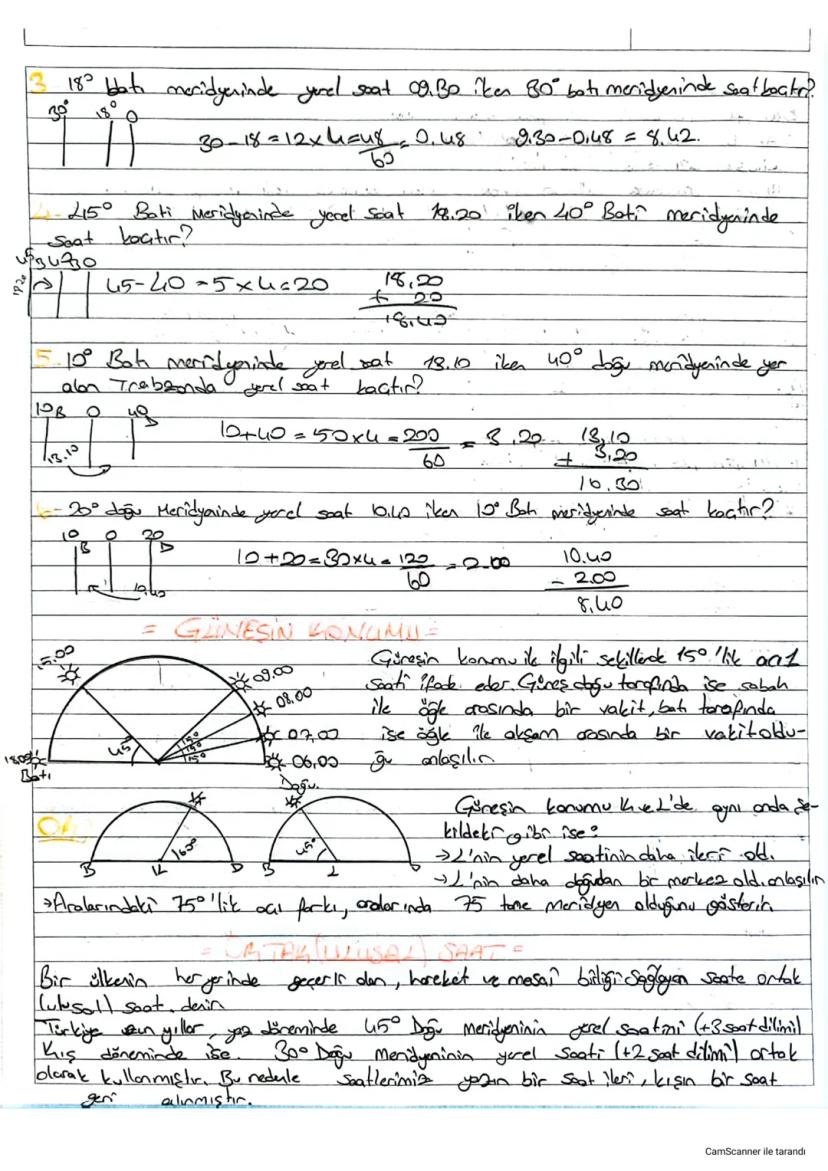 3 18° batı meridyeninde yerel saat 09.30 iken 30° batı meridyeninde saat kaçtır?
30° 18° 0
30-18=12x4=48/60=0.48 9.30-0.48 = 8.42.
4- 45° Batı Meridyeninde yerel saat 18.20 iken 40° Batı meridyeninde
saat kaçtır?
45 40 0
18.20
45-40=5x4=20
18,20
+ 20
18,40
5- 10° Batı meridyeninde yerel saat 13.10 iken 40° doğu meridyeninde yer
alan Trabzonda yerel saat kaçtır?
10B 0 40D
13.10
10+40=50x4=200/60=3.20
13,10
+ 3,20
16.30
6- 20° doğu Meridyeninde yerel saat 10.40 iken 10° Batı meridyeninde saat kaçtır?
10B 0 20D
10.40
10+20=30x4=120/60=2.00
10.40
- 2.00
8,40
= GÜNEŞİN KONUMU =
15.00
09.00
08.00
07.00
06.00
18.00
45°
15°
15°
15°
Batı
Doğu
Güneşin konumu ile ilgili şekillerde 15°'lik açı 1
saati ifade eder. Güneş doğu tarafında ise sabah
ile öğle arasında bir vakit, batı tarafında
ise öğle ile akşam arasında bir vakit oldu-
ğu anlaşılır
B K D
B L
45°
Güneşin konumu K ve L'de aynı anda şe-
kildeki gibi ise:
→L'nin yerel saatinin daha ileri old.
→L'nin daha doğudan bir merkez old. anlaşılır
→Aralarındaki 75°'lik açı farkı, aralarında 75 tane meridyen olduğunu gösterir.
= ORTAK (ULUSAL) SAAT =
Bir ülkenin her yerinde geçerli olan, hareket ve mesai birliği sağlayan saate ortak
(ulusal) saat denir
Türkiye uzun yıllar, yaz döneminde 45° Doğu Meridyeninin yerel saatini (+3 saat dilimi)
Kış döneminde ise 30° Doğu Meridyeninin yerel saati (+2 saat dilimi) ortak
olarak kullanmıştır. Bu nedenle saatlerimiz yazın bir saat ileri, kışın bir saat
geri alınmıştır.
CamScanner ile tarandı